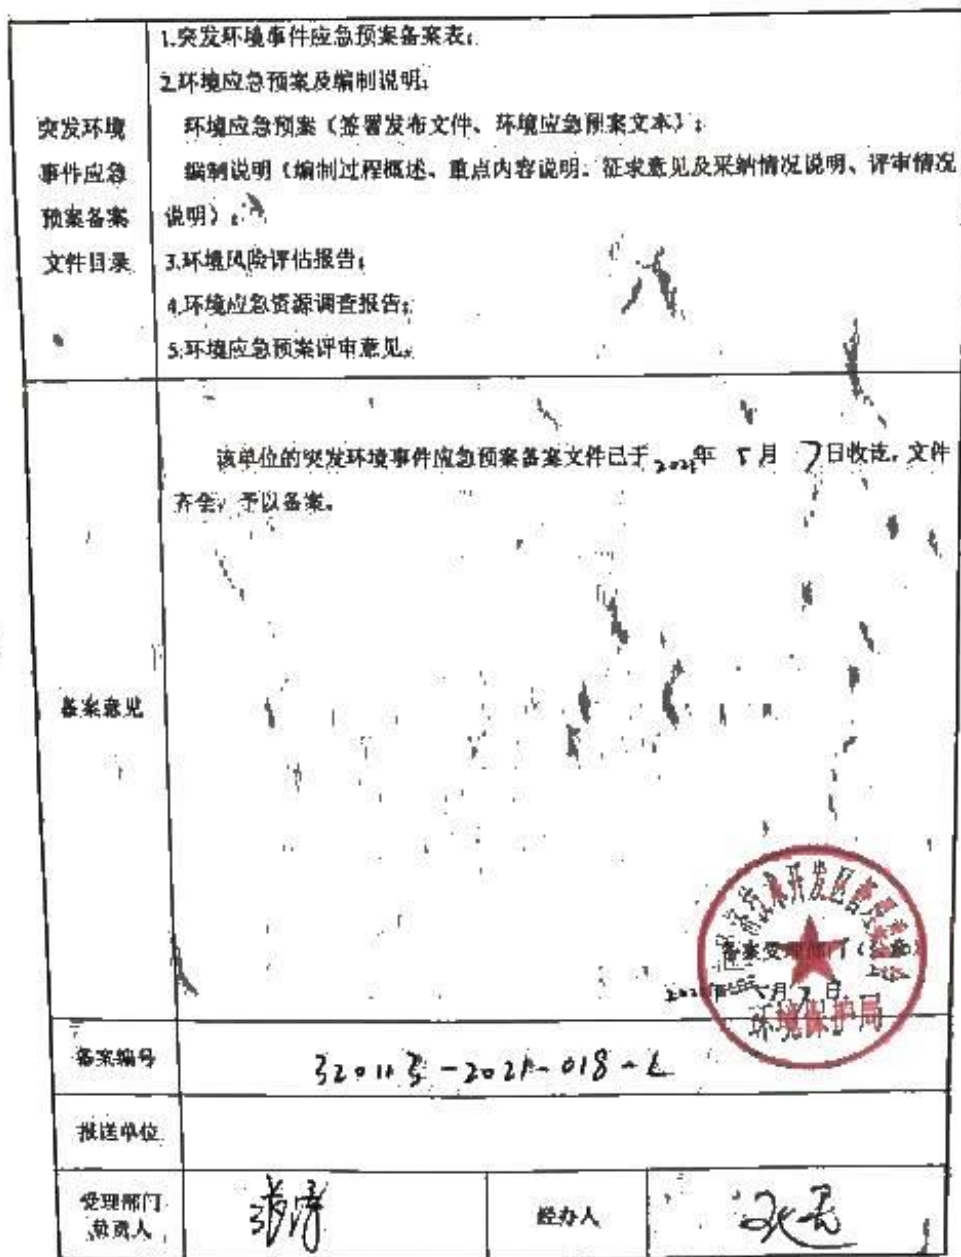 突发环境
事件应急
预案备案
文件目录
1.突发环境事件应急预案备案表;
2.环境应急预案及编制说明;
环境应急预案（签署发布文件、环境应急预案文本）;
编制说明（编制过程概述、重点内容说明、征求意见及采纳情况说明、评审情况
说明）;
3.环境风险评估报告;
4.环境应急资源调查报告;
5.环境应急预案评审意见。
备案意见
该单位的突发环境事件应急预案备案文件已于2021年 5月 7日收讫，文件
齐全，予以备案。
经济技术开发区管理委员会
环境保护局
备案受理部门（公章）
2021年 5月7日
备案编号
-2021-018-L
报送单位
受理部门
负责人
经办人